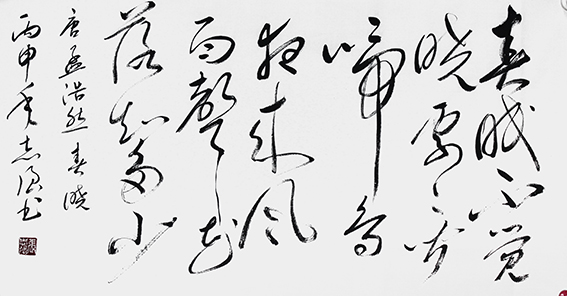 春眠不觉
晓處々闻
啼鸟
夜来风
雨聲花
落知多少
唐孟浩然春晓
丙申年志书